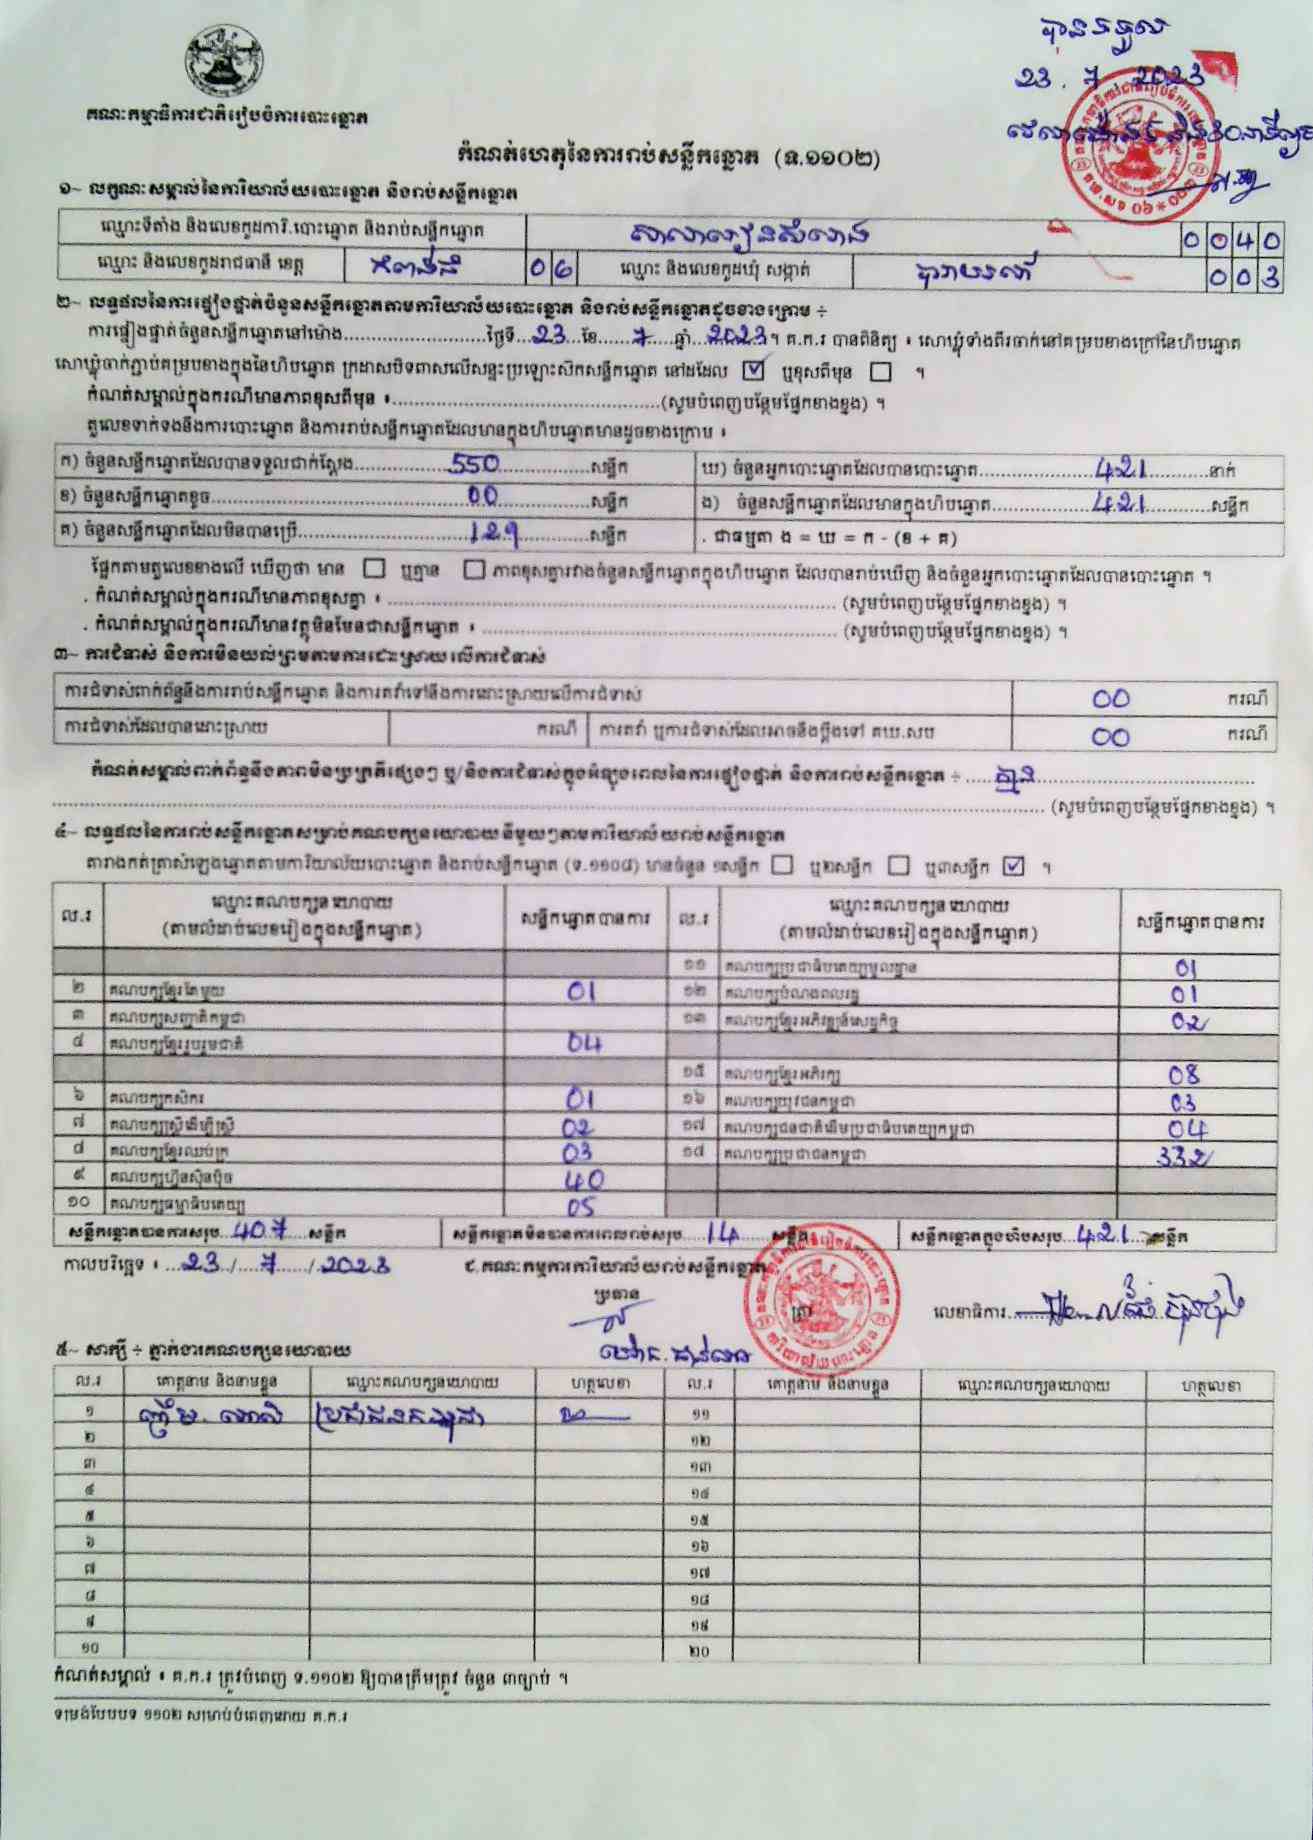 បានទទួល
23 . 7 2023
គណៈកម្មាធិការជាតិរៀបចំការបោះឆ្នោត
កំណត់ហេតុនៃការរាប់សន្លឹកឆ្នោត (ទ.១១០២)
១~ លក្ខណៈសម្គាល់នៃការិយាល័យបោះឆ្នោត និងរាប់សន្លឹកឆ្នោត
ឈ្មោះទីតាំង និងលេខកូដការិ.បោះឆ្នោត និងរាប់សន្លឹកឆ្នោត សាលារៀនសំរោង 0040
ឈ្មោះ និងលេខកូដរាជធានី ខេត្ត កំពង់ធំ 06 ឈ្មោះ និងលេខកូដឃុំ សង្កាត់ 003
២~ លទ្ធផលនៃការផ្ទៀងផ្ទាត់ចំនួនសន្លឹកឆ្នោតតាមការិយាល័យបោះឆ្នោត និងរាប់សន្លឹកឆ្នោតដូចខាងក្រោម ÷
ការផ្ទៀងផ្ទាត់ចំនួនសន្លឹកឆ្នោតនៅម៉ោង..........ថ្ងៃទី...23...ខែ...7...ឆ្នាំ...2023។ គ.ក.រ បានពិនិត្យ ៖ សោឃ្លុំទាំងពីរចាក់នៅគម្របខាងក្រៅនៃហិបឆ្នោត
សោឃ្លុំចាក់ភ្ជាប់គម្របខាងក្នុងនៃហិបឆ្នោត ក្រដាសបិទពាសលើសន្ទះប្រឡោះស៊កសន្លឹកឆ្នោត នៅដដែល ☑ ឬខុសពីមុន ☐ ។
កំណត់សម្គាល់ក្នុងករណីមានភាពខុសពីមុន ៖..........(សូមបំពេញបន្ថែមផ្នែកខាងខ្នង) ។
តួលេខទាក់ទងនឹងការបោះឆ្នោត និងការរាប់សន្លឹកឆ្នោតដែលមានក្នុងហិបឆ្នោតមានដូចខាងក្រោម ៖
ក) ចំនួនសន្លឹកឆ្នោតដែលបានទទួលជាក់ស្តែង..........550..........សន្លឹក ឃ) ចំនួនអ្នកបោះឆ្នោតដែលបានបោះឆ្នោត..........421..........នាក់
ខ) ចំនួនសន្លឹកឆ្នោតខូច..........00..........សន្លឹក ង) ចំនួនសន្លឹកឆ្នោតដែលមានក្នុងហិបឆ្នោត..........421..........សន្លឹក
គ) ចំនួនសន្លឹកឆ្នោតដែលមិនបានប្រើ..........129..........សន្លឹក . ជាធម្មតា ង = ឃ = ក - (ខ + គ)
ផ្អែកតាមតួលេខខាងលើ ឃើញថា មាន ☐ ឬគ្មាន ☐ ភាពខុសគ្នារវាងចំនួនសន្លឹកឆ្នោតក្នុងហិបឆ្នោត ដែលបានរាប់ឃើញ និងចំនួនអ្នកបោះឆ្នោតដែលបានបោះឆ្នោត ។
. កំណត់សម្គាល់ក្នុងករណីមានភាពខុសគ្នា ៖ .......... (សូមបំពេញបន្ថែមផ្នែកខាងខ្នង) ។
. កំណត់សម្គាល់ក្នុងករណីមានវត្ថុមិនមែនជាសន្លឹកឆ្នោត ៖ .......... (សូមបំពេញបន្ថែមផ្នែកខាងខ្នង) ។
៣~ ការជំទាស់ និងការមិនយល់ព្រមតាមការដោះស្រាយលើការជំទាស់
ការជំទាស់ពាក់ព័ន្ធនឹងការរាប់សន្លឹកឆ្នោត និងការតវ៉ាទៅនឹងការដោះស្រាយលើការជំទាស់ 00 ករណី
ការជំទាស់ដែលបានដោះស្រាយ ករណី ការតវ៉ា ឬការជំទាស់ដែលអាចនឹងប្តឹងទៅ គឃ.សប 00 ករណី
កំណត់សម្គាល់ពាក់ព័ន្ធនឹងភាពមិនប្រក្រតីផ្សេងៗ ឬ/និងការជំទាស់ក្នុងអំឡុងពេលនៃការផ្ទៀងផ្ទាត់ និងការរាប់សន្លឹកឆ្នោត ÷ ..... គ្មាន..........
.......... (សូមបំពេញបន្ថែមផ្នែកខាងខ្នង) ។
៤~ លទ្ធផលនៃការរាប់សន្លឹកឆ្នោតសម្រាប់គណបក្សនយោបាយនីមួយៗតាមការិយាល័យរាប់សន្លឹកឆ្នោត
តារាងកត់ត្រាសំឡេងឆ្នោតតាមការិយាល័យបោះឆ្នោត និងរាប់សន្លឹកឆ្នោត (ទ.១១០៨) មានចំនួន ១សន្លឹក ☐ ឬ២សន្លឹក ☐ ឬ៣សន្លឹក ☑ ។
ល.រ ឈ្មោះគណបក្សនយោបាយ (តាមលំដាប់លេខរៀងក្នុងសន្លឹកឆ្នោត) សន្លឹកឆ្នោតបានការ ល.រ ឈ្មោះគណបក្សនយោបាយ (តាមលំដាប់លេខរៀងក្នុងសន្លឹកឆ្នោត) សន្លឹកឆ្នោតបានការ
១១ គណបក្សប្រជាធិបតេយ្យមូលដ្ឋាន 01
២ គណបក្សខ្មែរតែមួយ 01 ១២ គណបក្សបំណងពលរដ្ឋ 01
៣ គណបក្សសញ្ជាតិកម្ពុជា ១៣ គណបក្សខ្មែរអភិវឌ្ឍន៍សេដ្ឋកិច្ច 02
៤ គណបក្សខ្មែររួបរួមជាតិ 04
១៥ គណបក្សខ្មែរអភិរក្ស 08
៦ គណបក្សកសិករ 01 ១៦ គណបក្សយុវជនកម្ពុជា 03
៧ គណបក្សស្ត្រីដើម្បីស្ត្រី 02 ១៧ គណបក្សជនជាតិដើមប្រជាធិបតេយ្យកម្ពុជា 04
៨ គណបក្សខ្មែរឈប់ក្រ 03 ១៨ គណបក្សប្រជាជនកម្ពុជា 332
៩ គណបក្សហ្វ៊ុនស៊ិនប៉ិច 40
១០ គណបក្សធម្មាធិបតេយ្យ 05
សន្លឹកឆ្នោតបានការសរុប..407...សន្លឹក សន្លឹកឆ្នោតមិនបានការពេលរាប់សរុប....14......សន្លឹក សន្លឹកឆ្នោតក្នុងហិបសរុប..421...សន្លឹក
កាលបរិច្ឆេទ ៖ ...23.../...7..../..2023 ៩.គណៈកម្មការការិយាល័យរាប់សន្លឹកឆ្នោត
ប្រធាន ត្រា លេខាធិការ..........
៥~ សាក្សី ÷ ភ្នាក់ងារគណបក្សនយោបាយ
ល.រ គោត្តនាម និងនាមខ្លួន ឈ្មោះគណបក្សនយោបាយ ហត្ថលេខា ល.រ គោត្តនាម និងនាមខ្លួន ឈ្មោះគណបក្សនយោបាយ ហត្ថលេខា
១ ប្រជាជនកម្ពុជា ១១
២ ១២
៣ ១៣
៤ ១៤
៥ ១៥
៦ ១៦
៧ ១៧
៨ ១៨
៩ ១៩
១០ ២០
កំណត់សម្គាល់ ៖ គ.ក.រ ត្រូវបំពេញ ទ.១១០២ ឱ្យបានត្រឹមត្រូវ ចំនួន ៣ច្បាប់ ។
ទម្រង់បែបបទ ១១០២ សម្រាប់បំពេញដោយ គ.ក.រ